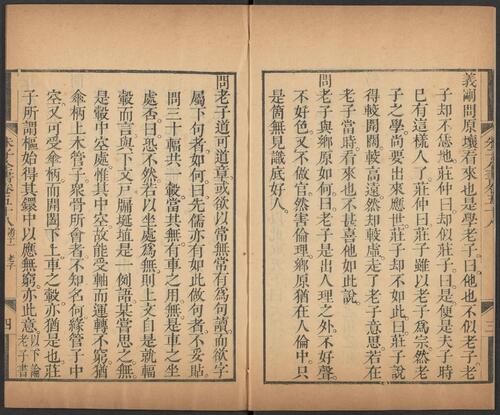 義剛問原壤看來也是學老子曰他也不似老子老
子却不恁地莊仲曰却似莊子曰是便是夫子時
已有這樣人了莊仲曰莊子雖以老子爲宗然老
子之學尚要出來應世莊子却不如此曰莊子說
得較開闊較高遠然却較虛走了老子意思若在
老子當時看來也不甚喜他如此說
問老子與鄉原如何曰老子是出人理之外不好聲
不好色又不做官然害倫理鄉原猶在人倫中只
是箇無見識底好人
三
問老子道可道章或欲以常無常有爲句讀而欲字
屬下句者如何曰先儒亦有如此做句者不妥貼
問三十輻共一轂當其無有車之用無是車之坐
處否曰恐不然若以坐處爲無則上文自是就輻
轂而言與下文戶牖埏埴是一例語某嘗思之無
是轂中空處惟其中空故能受軸而運轉不窮猶
傘柄上木管子衆骨所會者不知名何緣管子中
空又可受傘柄而開闔下上車之轂亦猶是也莊
子所謂樞始得其環中以應無窮亦此意以下論老子書
四